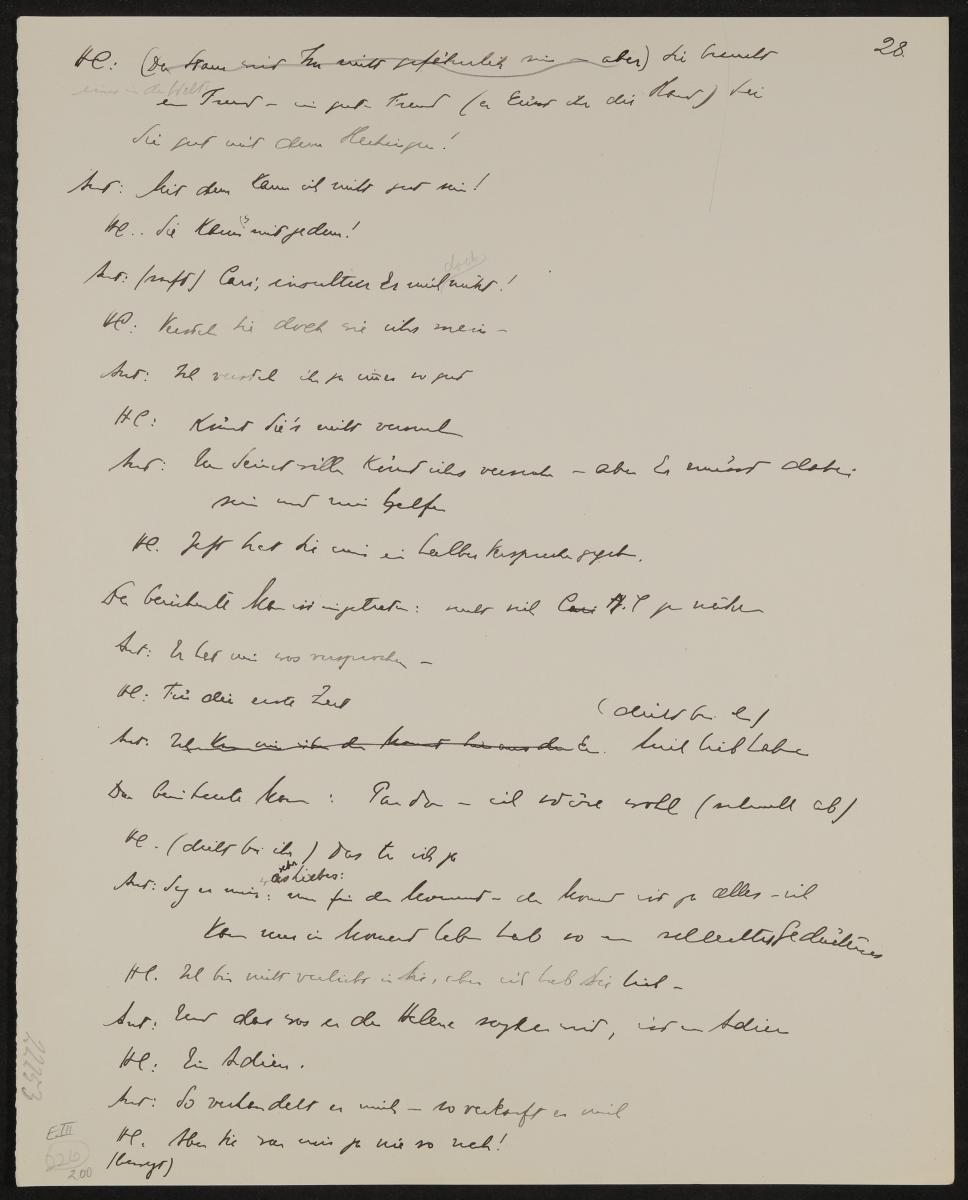 28.
HC: (Der Stani wird Ihr nicht gefährlich sein – aber) Sie braucht
einen in der Welt
ein Freund – ein guter Freund (er küsst ihr die Hand) Sei
Sie gut mit dem Hechingen!
Ant: Mit dem kann ich nicht gut sein!
HC.. Sie kanns mit jedem!
Ant: (sanft) Cari, insultier Er mich nicht!
doch
HC: Versteh Sie doch wie ichs mein –
Ant: Ich versteh ihn ja immer so gut
HC: Könnt Sie's nicht versuchen
Ant: Um Seinetwillen könnt ichs versuchen – aber Er müsst dabei
sein und mir helfen
HC. Jetzt hat Sie mir ein halbes Versprechen gegeben.
Der berühmte Mann ist eingetreten: sucht sich Cari H.C zu nähern
Ant: Er hat mir was versprochen –
HC: Für die erste Zeit
(dicht bei ihm)
Ant: Mich lieb haben
Der berühmte Mann: Pardon – ich störe wohl (schnell ab)
HC. (dicht bei ihr) Das tu ich ja
etwas Liebes:
Ant: Sag er mir: nur für den Moment – der Moment ist ja alles – ich
kann nur im Moment leben hab so ein schlechtes Gedächtniss
HC. Ich bin nicht verliebt in Sie, aber ich hab Sie lieb –
Ant: Und das was er der Helene sagen wird, ist ein Adieu
HC: Ein Adieu.
Ant: So verhandelt er mich – so verkauft er mich
HC. Aber Sie war mir ja nie so nah!
(bewegt)
22253
E III
226
2.00